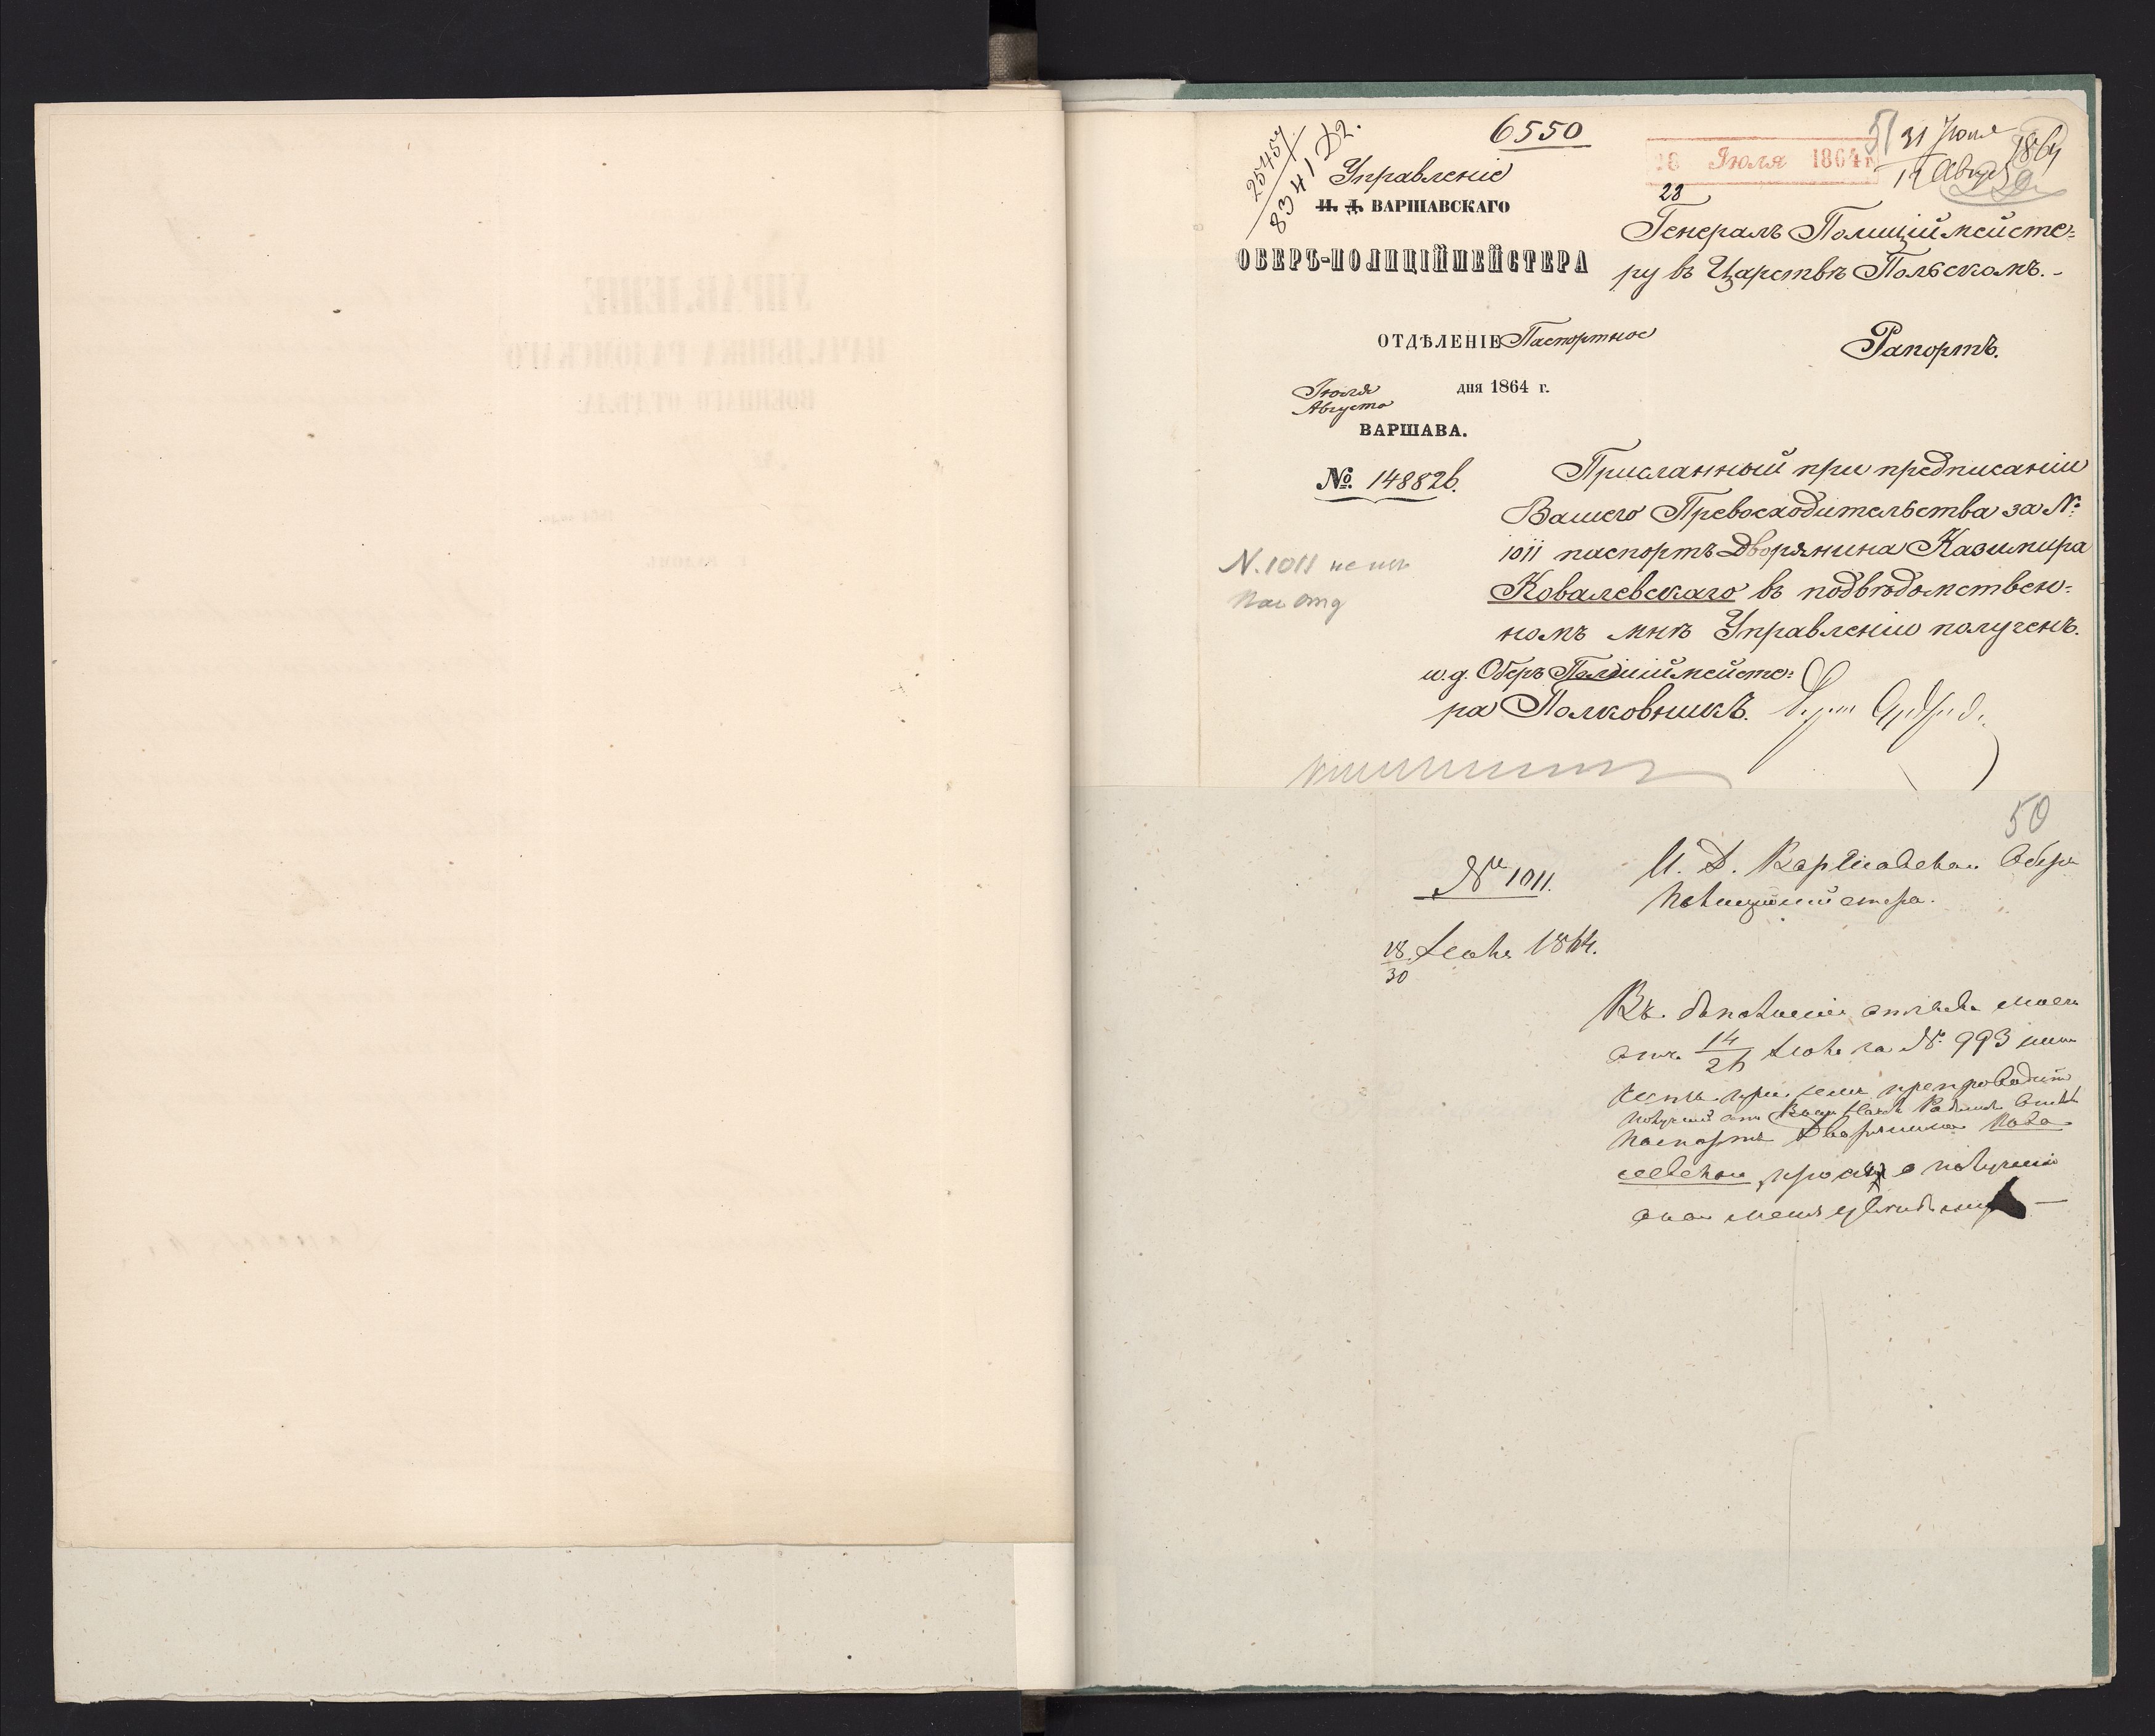 6550
25457
8341 Д2.
Управленіе
И. Д. ВАРШАВСКАГО
ОБЕРЪ-ПОЛИЦІЙМЕЙСТЕРА
ОТДѢЛЕНІЕ Паспортное
Іюля
Августа
дня 1864 г.
ВАРШАВА.
№. 14882
N. 1011
51
31 Іюля
12 Август 1864
18 Іюля 1864 г.
28
Генералъ Полиціймейсте-
ру въ Царствѣ Польскомъ.
Рапортъ.
Присланный при предписаніи
Вашего Превосходительства за №
1011 паспортъ Дворянина Казимира
Ковалевскаго въ подвѣдомствен-
номъ мнѣ Управленіи полученъ.
и.д. Оберъ Полиціймейсте-
ра Полковникъ.
50
№ 1011.
18/30 Іюля 1864.
И. Д. Варшавскаго Оберъ
Полиціймейстера.
Въ дополненіе отзыва моего
отъ 14/26 Іюля за № 993 имѣю
честь при семъ препроводить
паспортъ Дворянина Кова
левскаго, прошу о полученіи
онаго меня увѣдомить
УПРАВЛЕНІЕ
НАЧАЛЬНИКА РАДОМСКАГО
ВОЕННАГО ОТДѢЛА